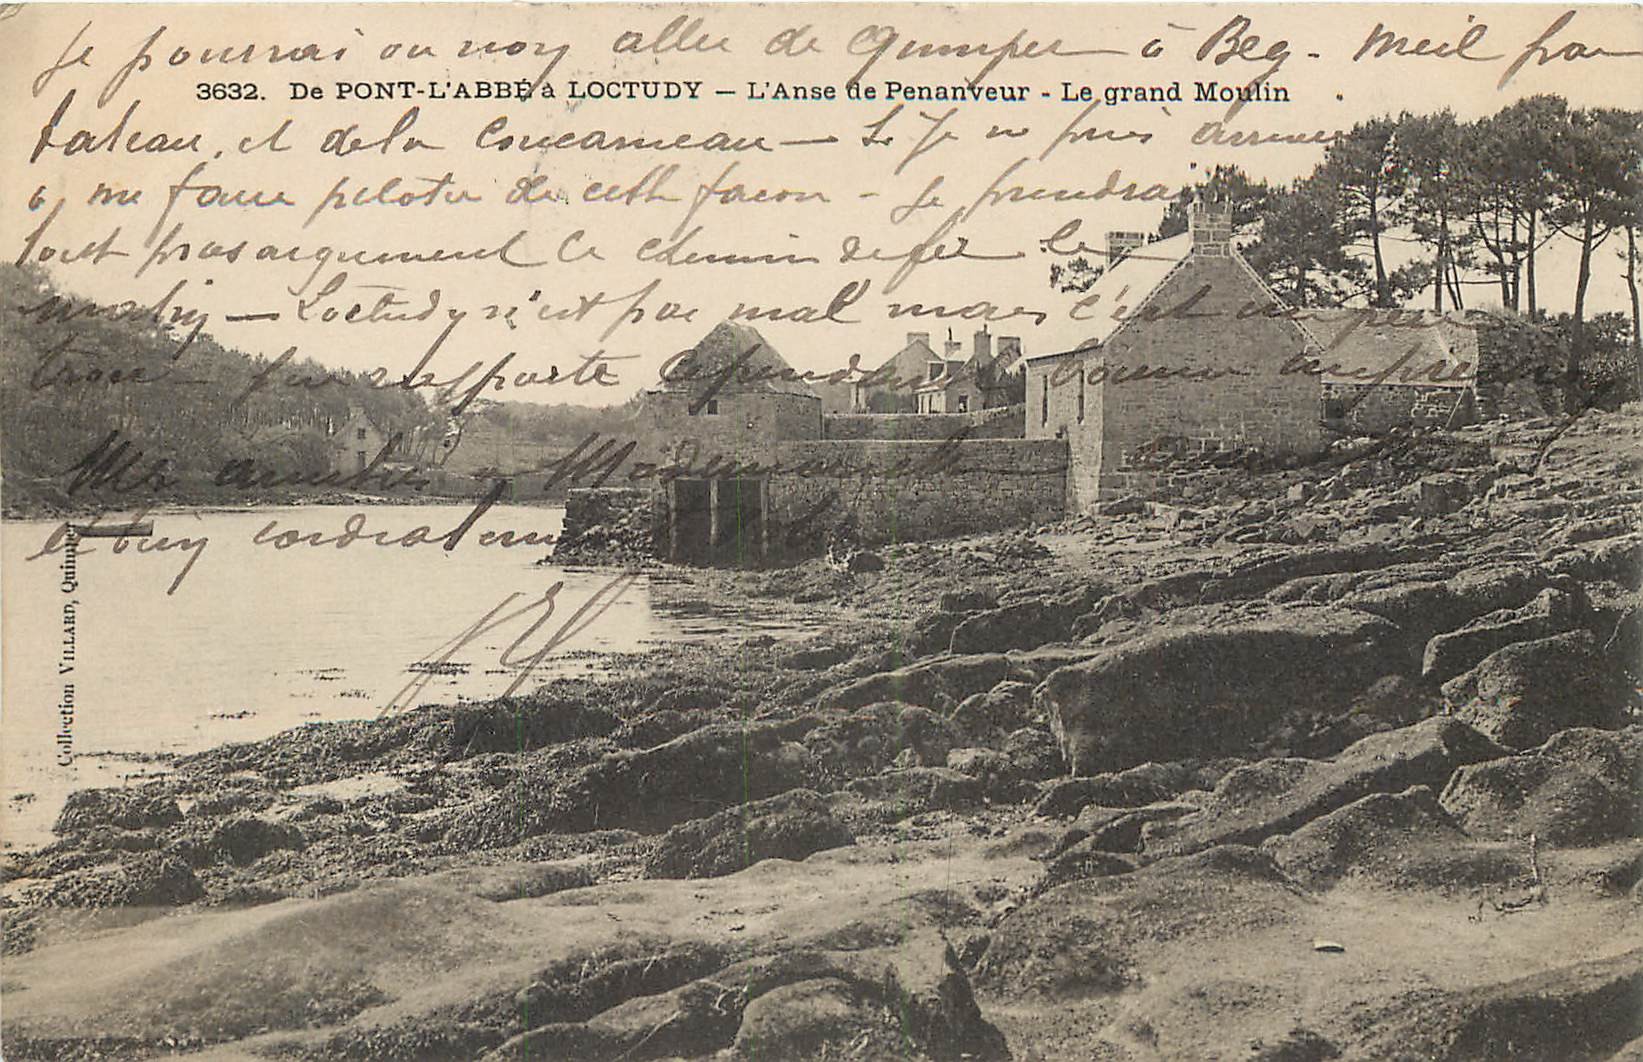 Je pourrai ou non aller de Quimper à Beg-Meil par
3632. De PONT-L'ABBÉ à LOCTUDY — L'Anse de Penanveur - Le grand Moulin
bateau, et de là Concarneau — Si je ne puis arriver
à me faire piloter de cette façon — je prendrai
tout prosaiquement le chemin de fer le
matin — Loctudy n'est pas mal mais c'est un peu
trou Cependant bonne impression
Mes amitiés à Mademoiselle
et bien cordialement
Collection VILLARD, Quimper